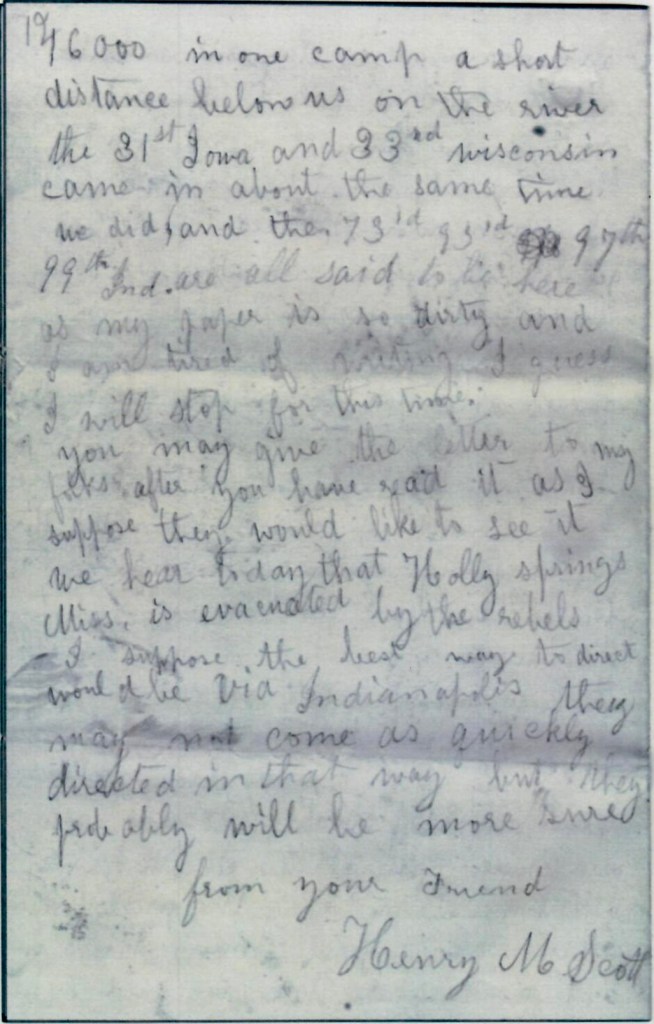 16000 in one camp a short
distance below us on the river
the 31st Iowa and 33rd wisconsin
came in about the same time
we did, and the 73'd 93'd 97th
99th Ind. are all said to be here
as my paper is so dirty and
I am tired of writing I guess
I will stop for this time.
you may give the letter to my
folks after you have read it as I
suppose they would like to see it
we hear today that Holly springs
Miss. is evacuated by the rebels
I suppose the best way to direct
would be Via Indianapolis they
may not come as quickly
directed in that way but they
probably will be more sure
from your Friend
Henry M Scott